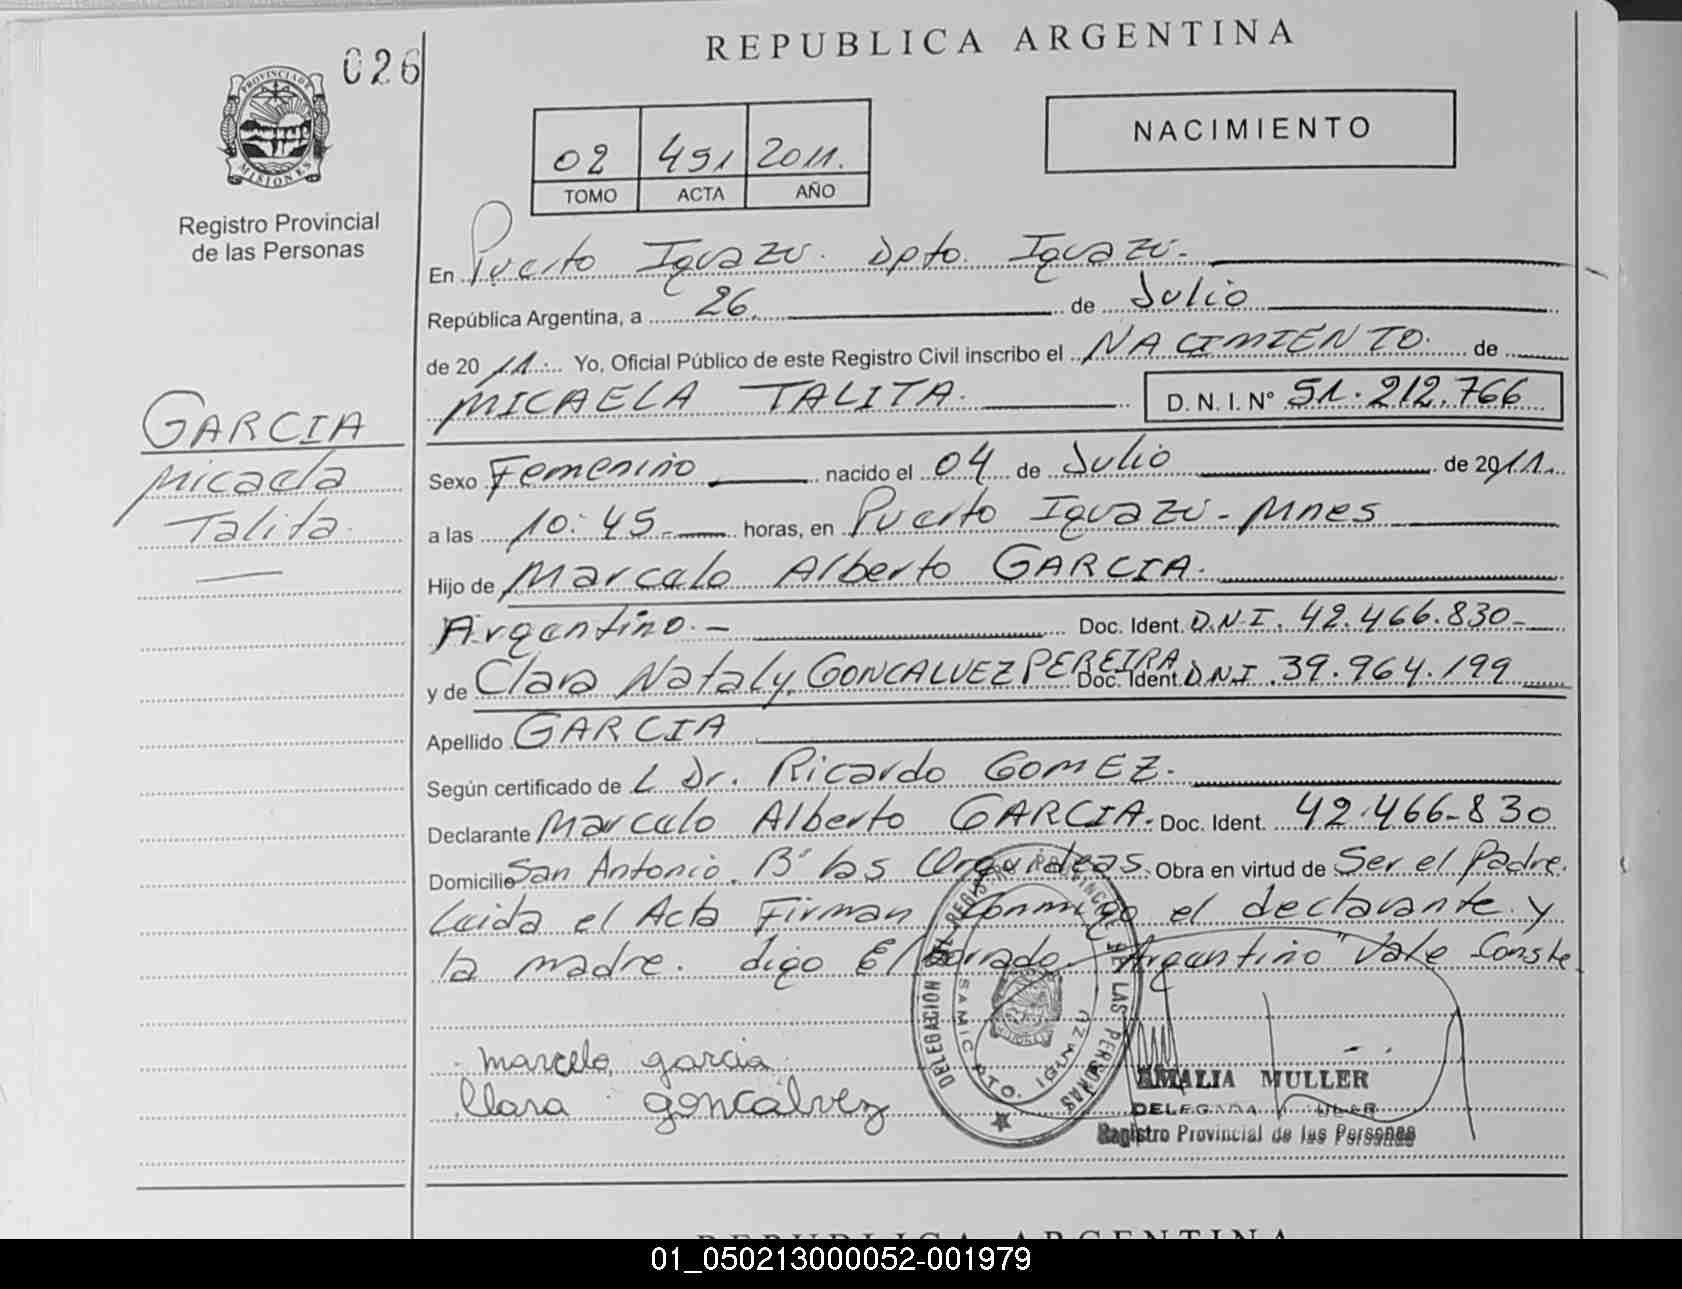 REPUBLICA ARGENTINA
026
PROVINCIA DE
MISIONES
Registro Provincial
de las Personas
02 451 2011.
TOMO ACTA AÑO
NACIMIENTO
En Puerto Iguazú. Dpto. Iguazú.-
República Argentina, a 26. de Julio
de 2011. Yo, Oficial Público de este Registro Civil inscribo el NACIMIENTO. de
MICAELA TALITA. D. N. I. Nº 51.212.766
GARCIA
Micaela
Talita.
Sexo Femenino nacido el 04 de Julio de 2011.
a las 10:45.- horas, en Puerto Iguazú - Mnes
Hijo de Marcelo Alberto GARCIA.
Argentino.- Doc. Ident. D.N.I. 42.466.830-
y de Clara Nataly GONCALVEZ PEREIRA Doc. Ident. D.N.I. 39.964.199
Apellido GARCIA
Según certificado de L Dr. Ricardo GOMEZ.
Declarante Marcelo Alberto GARCIA. Doc. Ident. 42.466-830
Domicilio San Antonio. Bº las Orquideas. Obra en virtud de Ser el Padre.
Leida el Acta Firman Conmigo el declarante y
la madre. digo El borrado "Argentino" Vale Conste
marcelo garcia
Clara goncalvez
DELEGACIÓN DEL REGISTRO PROVINCIAL DE LAS PERSONAS
SAMIC PTO. IGUAZU
AMALIA MULLER
DELEGADA
Registro Provincial de las Personas
REPUBLICA ARGENTINA
01_050213000052-001979